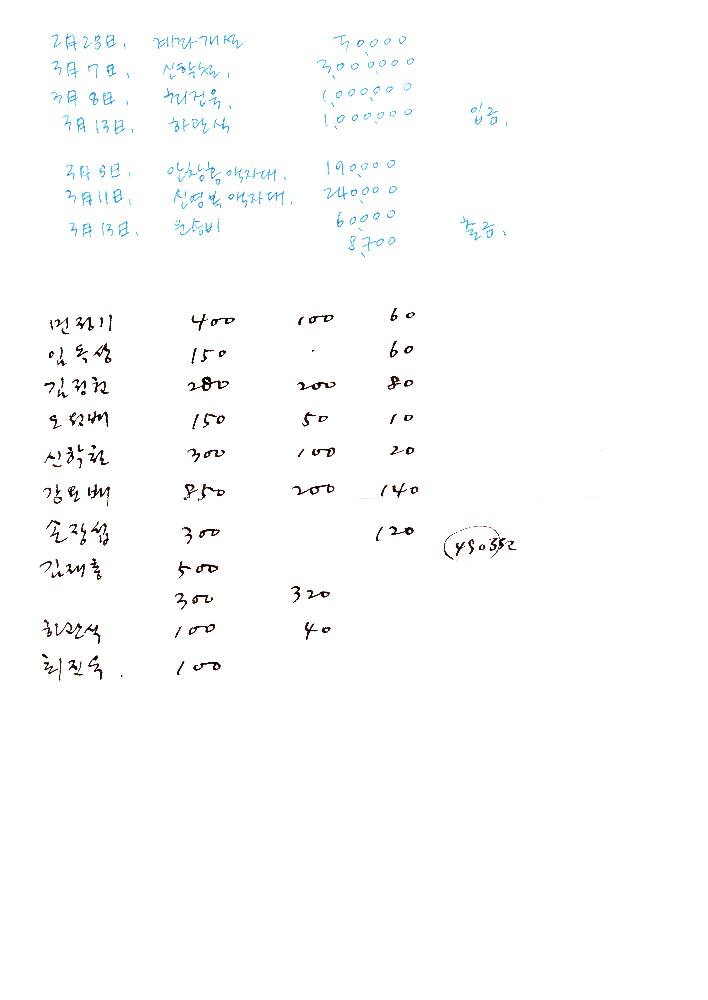 2月23日, 계좌개설 50,000
3月7日, 신학철, 3,000,000
3月8日, 최진욱, 1,000,000
3月13日, 하관식 1,000,000 입금,
3月5日, 안창홍액자대, 190,000
3月11日, 신영복액자대, 240,000
3月13日, 운송비 60,000
8,700 출금,
민정기 400 100 60
임옥상 150 · 60
김정헌 280 200 80
150 50 10
신학철 300 100 20
강요배 850 200 140
손장섭 300 120
김재홍 500
300 320
하관식 100 40
최진욱. 100